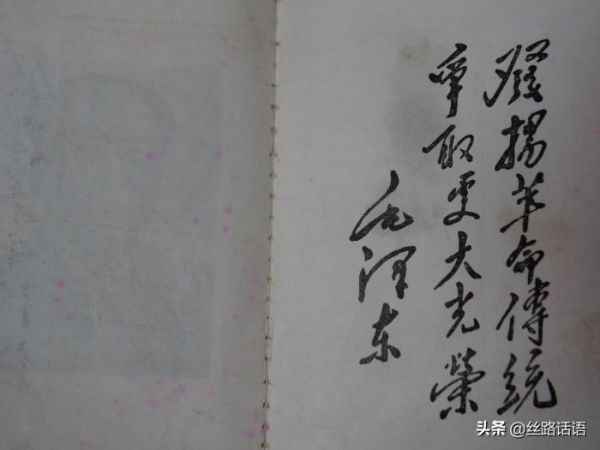 發揚革命傳統
爭取更大光榮
毛泽东
头条 @丝路话语